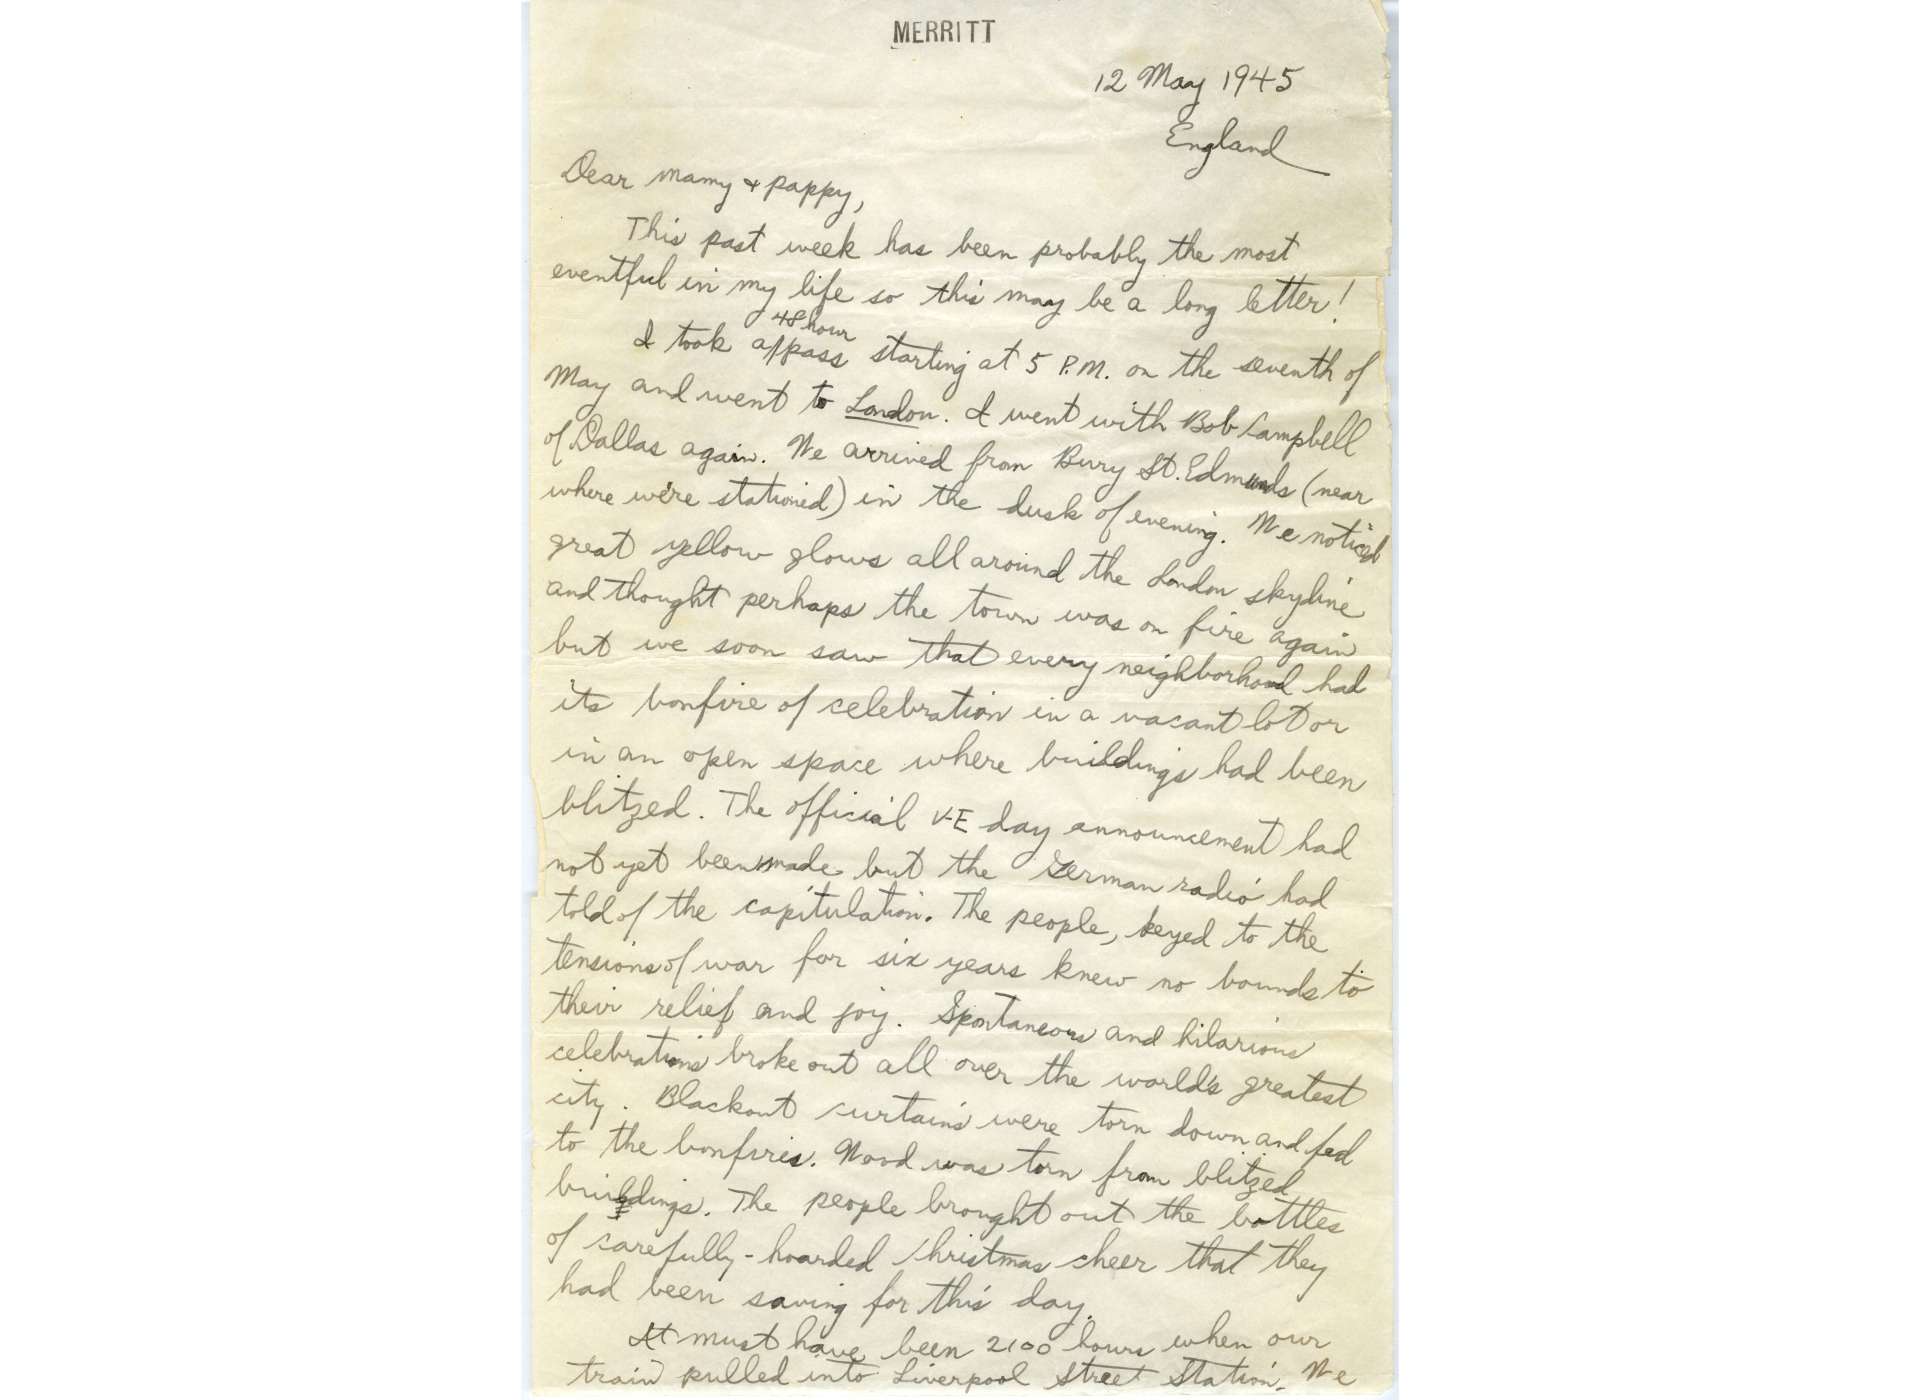 MERRITT
12 May 1945
England
Dear mamy + pappy,
This past week has been probably the most
eventful in my life so this may be a long letter!
I took a 48 hour pass starting at 5 P.M. on the seventh of
May and went to London. I went with Bob Campbell
of Dallas again. We arrived from Bury St. Edmunds (near
where we're stationed) in the dusk of evening. We noticed
great yellow glows all around the London skyline
and thought perhaps the town was on fire again
but we soon saw that every neighborhood had
its bonfire of celebration in a vacant lot or
in an open space where buildings had been
blitzed. The official V-E day announcement had
not yet been made but the German radio had
told of the capitulation. The people, keyed to the
tensions of war for six years knew no bounds to
their relief and joy. Spontaneous and hilarious
celebrations broke out all over the world's greatest
city. Blackout curtains were torn down and fed
to the bonfires. Wood was torn from blitzed
buildings. The people brought out the bottles
of carefully-hoarded Christmas cheer that they
had been saving for this day.
It must have been 2100 hours when our
train pulled into Liverpool Street Station. We